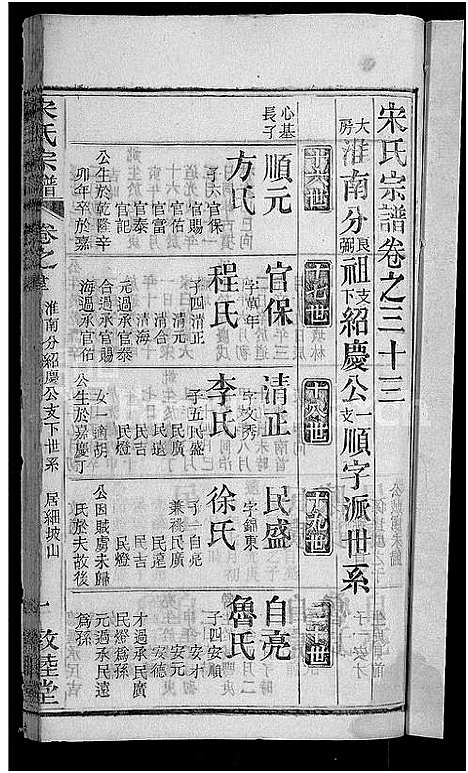 宋氏宗譜卷之三十三
大房淮南分良弼祖支下紹慶公一支順字派世系
十六世
十七世
十八世
十九世
二十世
心基長子
順元
方氏
子六官保
官賜
官佑
官富
官泰
官記
公生於乾隆辛
卯年卒於嘉
官保
字萬年
程氏
子四清正
清元
清合
清海
元過承官泰
合過承官賜
海過承官佑
清正
字文秀
李氏
子五民盛
民廣
民遠
民吉
民燈
女一適胡
公生於嘉慶丁
民盛
字錦東
徐氏
子一自亮
兼祧民廣
民遠
民吉
民燈
公因賊虜未歸
民於夫故後
自亮
魯氏
子四安順
安才
安元
安德
才過承民廣
民燈爲孫
元過承民遠
爲孫
宋氏宗譜
卷之
淮南分紹慶公支下世系
居細坡山
一
敦睦堂